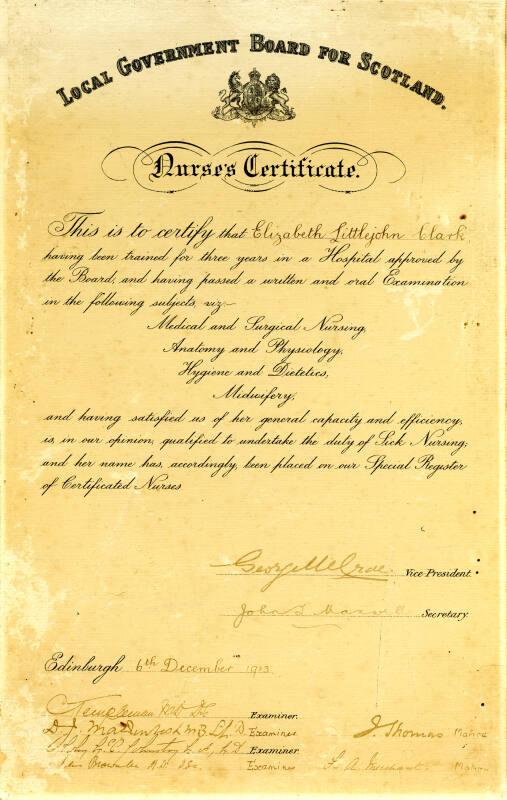 LOCAL GOVERNMENT BOARD FOR SCOTLAND.
Nurse's Certificate.
This is to certify that Elizabeth Littlejohn Clark,
having been trained for three years in a Hospital approved by
the Board, and having passed a written and oral Examination
in the following subjects, viz:-
Medical and Surgical Nursing,
Anatomy and Physiology,
Hygiene and Dietetics,
Midwifery,
and having satisfied us of her general capacity and efficiency,
is, in our opinion, qualified to undertake the duty of Sick Nursing;
and her name has, accordingly, been placed on our Special Register
of Certificated Nurses.
George McCrae. Vice-President.
John T Maxwell Secretary.
Edinburgh 6th December 1913
Examiner.
D. J. Mackintosh M.B. LL.D. Examiner. J. Thomas Matron
Examiner.
Examiner L. A. Matron